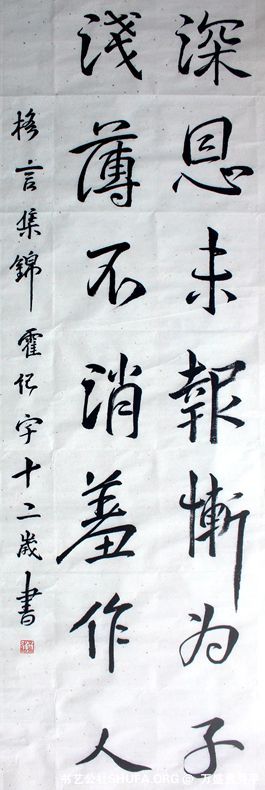 深恩未報慚为子
淺薄不消羞作人
格言集錦 霍 宇十二歲書
书艺公社SHUFA.ORG @